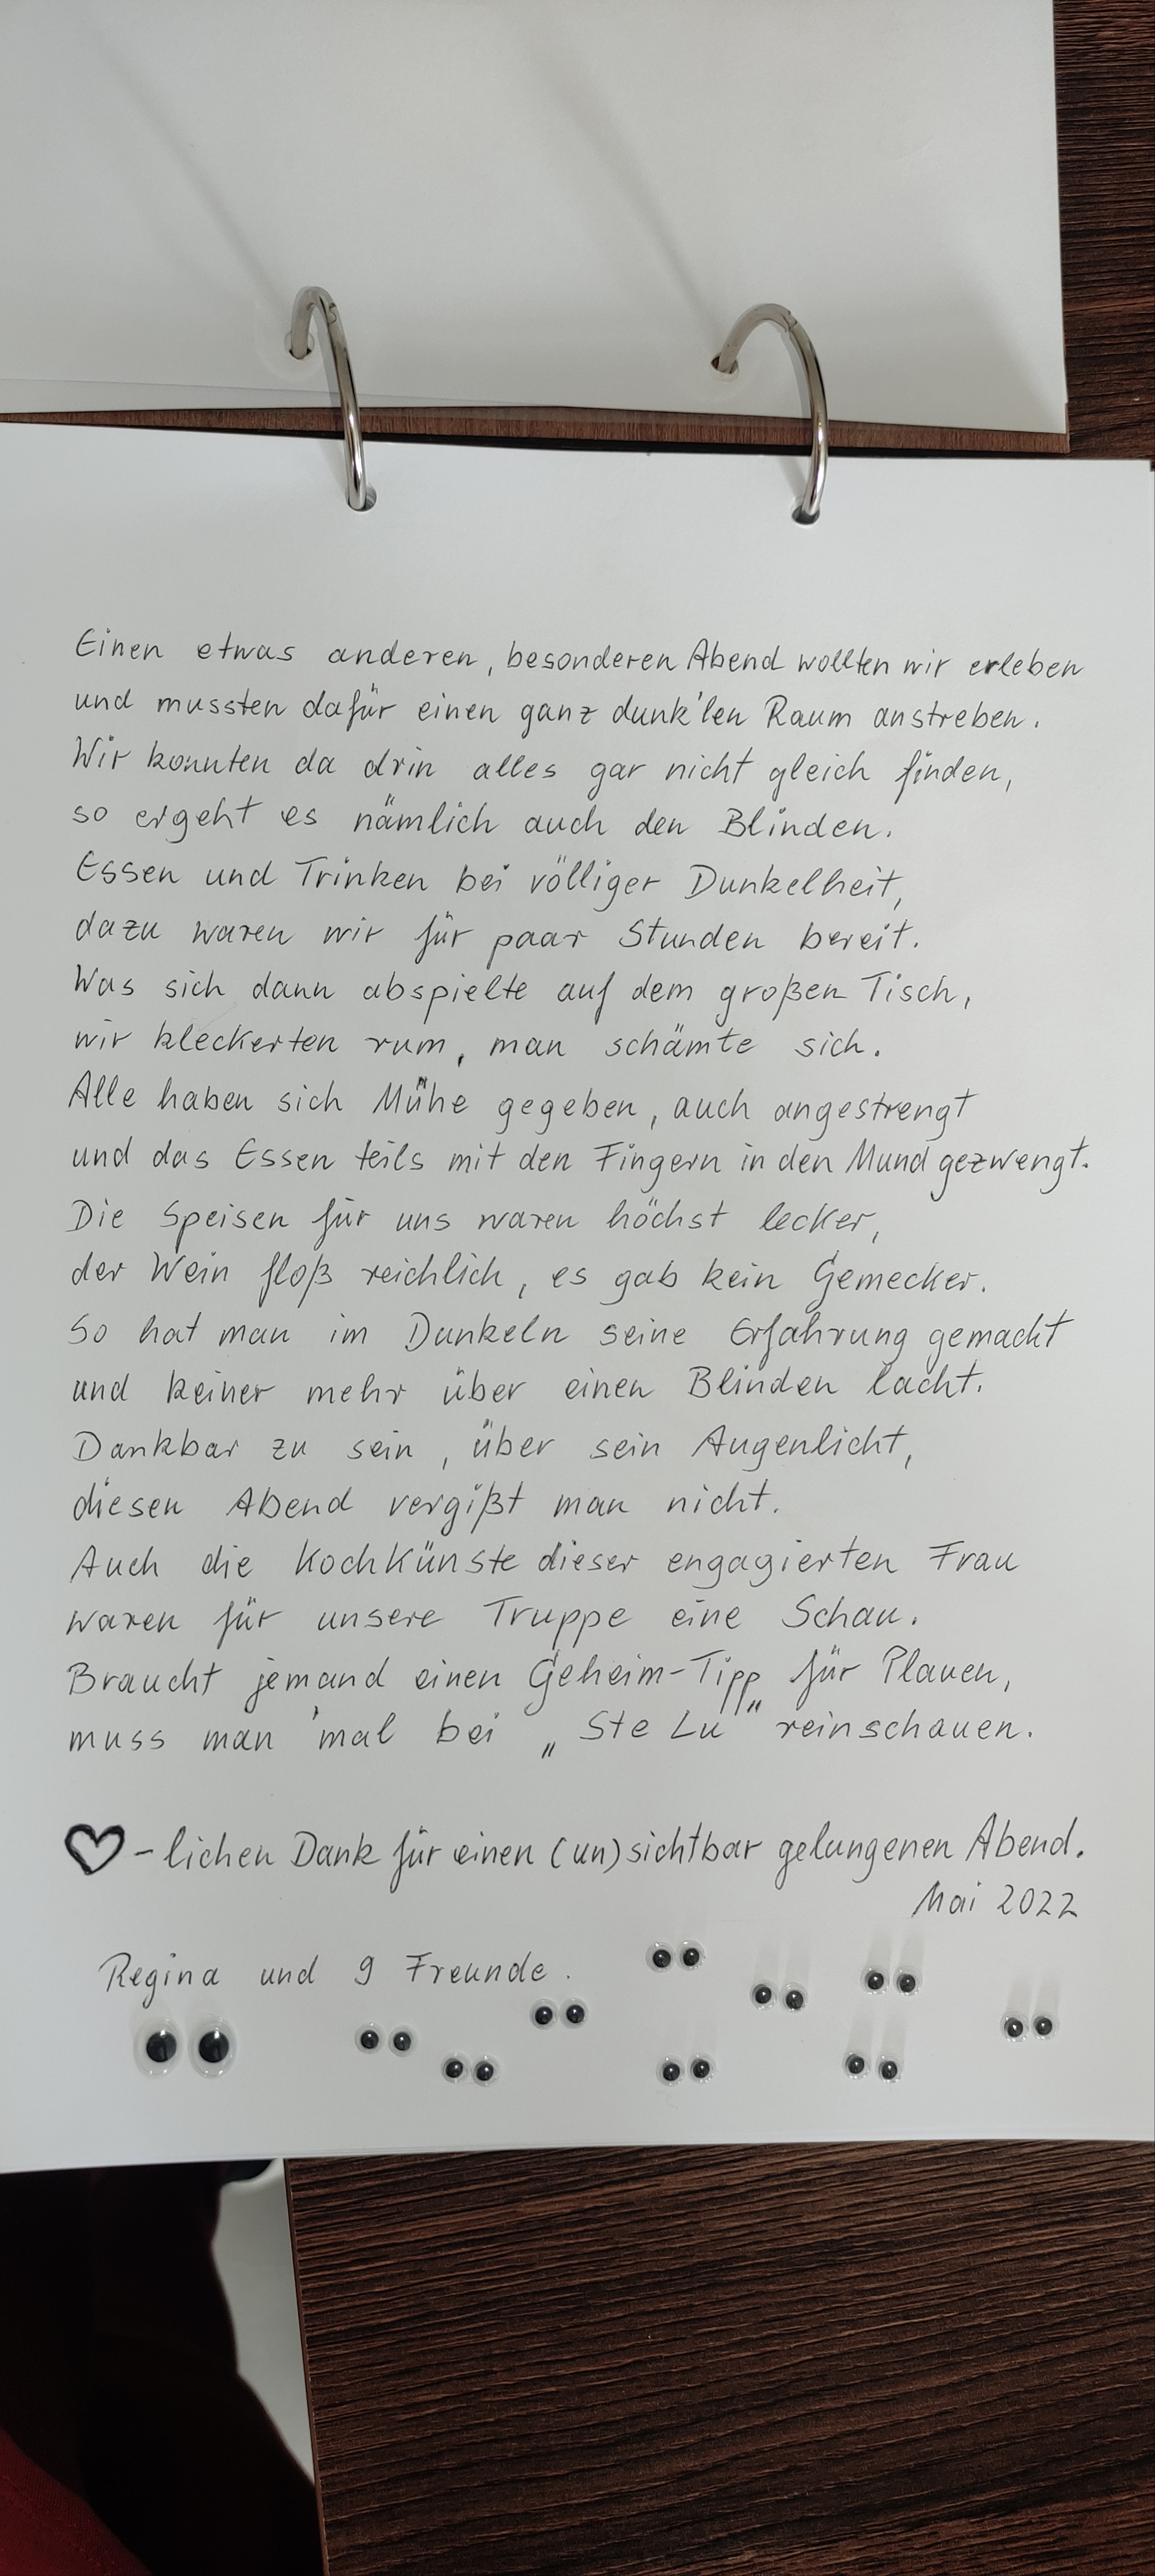 Einen etwas anderen, besonderen Abend wollten wir erleben
und mussten dafür einen ganz dunk'len Raum anstreben.
Wir konnten da drin alles gar nicht gleich finden,
so ergeht es nämlich auch den Blinden.
Essen und Trinken bei völliger Dunkelheit,
dazu waren wir für paar Stunden bereit.
Was sich dann abspielte auf dem großen Tisch,
wir kleckerten rum, man schämte sich.
Alle haben sich Mühe gegeben, auch angestrengt
und das Essen teils mit den Fingern in den Mund gezwengt.
Die Speisen für uns waren höchst lecker,
der Wein floß reichlich, es gab kein Gemecker.
So hat man im Dunkeln seine Erfahrung gemacht
und keiner mehr über einen Blinden lacht.
Dankbar zu sein, über sein Augenlicht,
diesen Abend vergißt man nicht.
Auch die Kochkünste dieser engagierten Frau
waren für unsere Truppe eine Schau.
Braucht jemand einen Geheim-Tipp für Plauen,
muss man 'mal bei „Ste Lu" reinschauen.
♡-lichen Dank für einen (un)sichtbar gelungenen Abend.
Mai 2022
Regina und 9 Freunde.